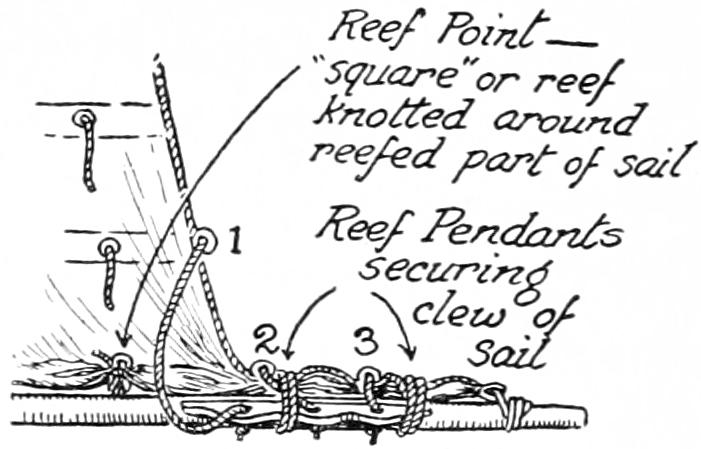 Reef Point —
"square" or reef
knotted around
reefed part of sail
1
Reef Pendants
securing
clew of
sail
2
3